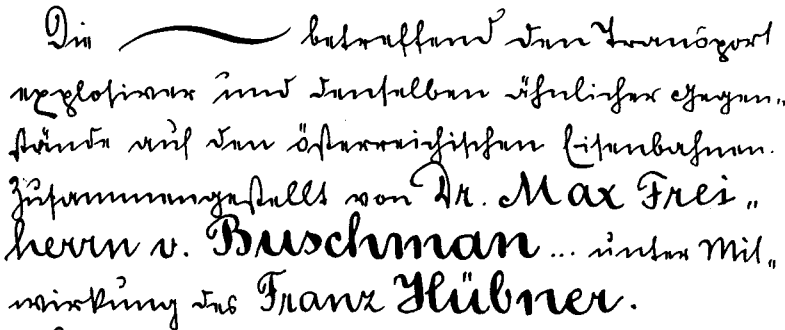 Die — betreffend den Transport
explosiver und denselben ähnlicher Gegen-
stände auf den österreichischen Eisenbahnen.
Zusammengestellt von Dr. Max Frei-
herrn v. Buschman ... unter Mit-
wirkung des Franz Hübner.